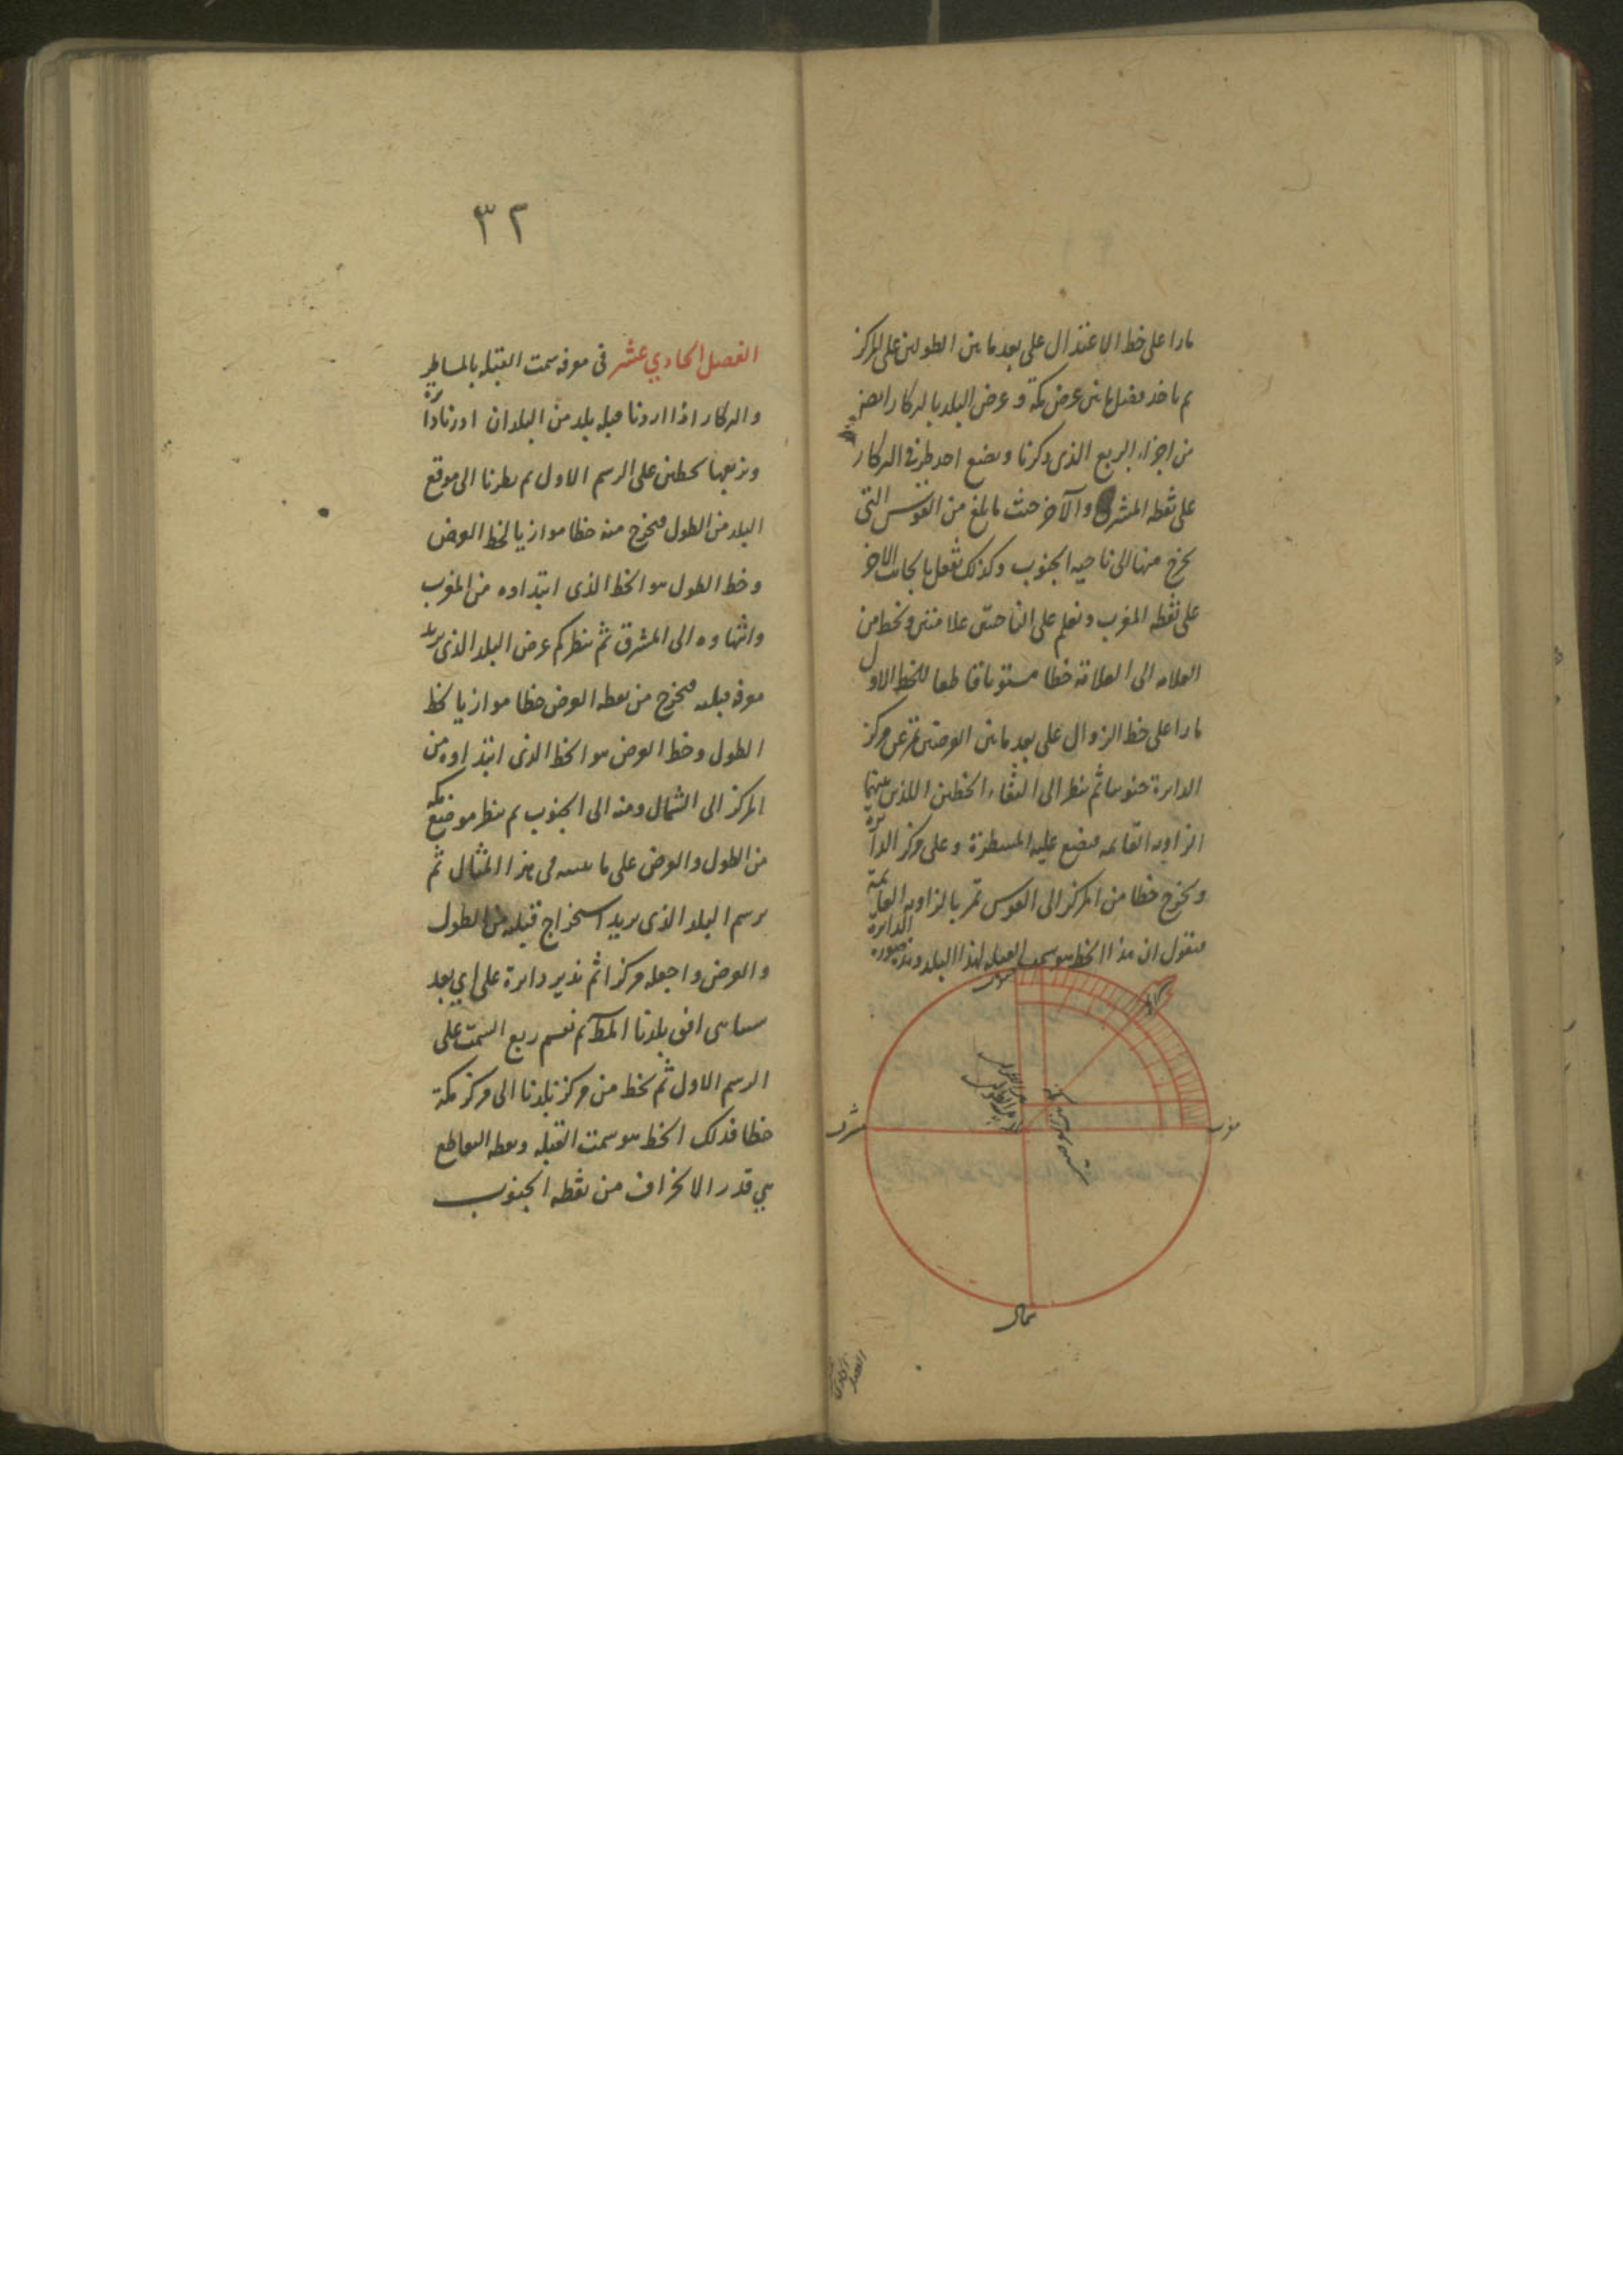 مارا على خط الاعتدال على بعد ما بين الطولين على المركز
ثم ناخذ فضل ما بين عرض مكة وعرض البلد بالبركار ايضا
من اجزاء الربع الذى ذكرنا ونضع احد طرفى البركار
على نقطه المشرق والآخر حيث ما بلغ من القوس التى
يخرج منها الى ناحيه الجنوب وكذلك نفعل بالجانب الاخر
على نقطه المغرب ونعلم على الناحيتين علامتين ونخط من
العلامه الى العلامة خطا مستويا قاطعا للخط الاول
مارا على خط الزوال على بعد ما بين العرضين عن مركز
الدايرة جنوبيا ثم ننظر الى التقاء الخطين اللذين بينهما
الزاويه القايمه فنضع عليه المسطرة وعلى مركز الدائرة
ونخرج خطا من المركز الى القوس تمر بالزاويه القايمة
فنقول ان هذا الخط هو سمت القبله لهذا البلد وهذه صورة الدايرة
جنوب
مشرق
مغرب
شمال
الفصل الحادي
٣٢
الفصل الحادي عشر فى معرفه سمت القبله بالمساطر
والبركار اذا اردنا قبله بلد من البلدان ادرنا دائرة
ونربعها بخطين على الرسم الاول ثم نظرنا الى موقع
البلد من الطول فنخرج منه خطا موازيا لخط العرض
وخط الطول هو الخط الذى ابتداوه من المغرب
وانتهاوه الى المشرق ثم ننظر كم عرض البلد الذى نريد
معرفه قبلته فنخرج من نقطه العرض خطا موازيا لخط
الطول وخط العرض هو الخط الذى ابتداوه من
المركز الى الشمال ومنه الى الجنوب ثم ننظر موضع مكه
من الطول والعرض على ما فى هذا المثال ثم
نرسم البلد الذى نريد استخراج قبلته من الطول
والعرض واجعله مركزا ثم ندير دايرة على اي بعد
افق بلدنا ثم نقسم ربع السمت على
الرسم الاول ثم نخط من مركز بلدنا الى مركز مكة
خطا فذلك الخط هو سمت القبله ونقطه التقاطع
هي قدر الانحراف من نقطه الجنوب